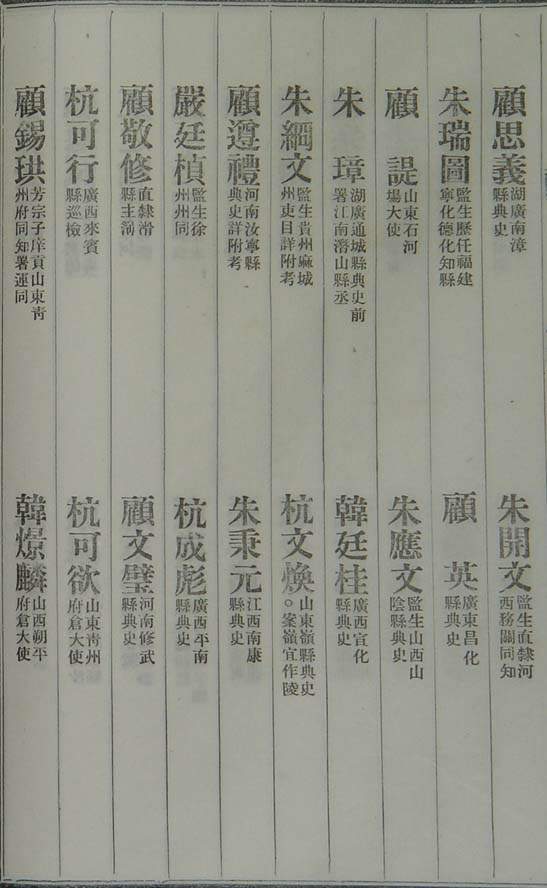 顧思義 湖廣南漳縣典史 朱開文 監生直隸河西務關同知
朱瑞圖 監生歷任福建寧化德化知縣 顧英 廣東昌化縣典史
顧諟 山東石河場大使 朱應文 監生山西山陰縣典史
朱璋 湖廣通城縣典史前署江南潛山縣丞 韓廷桂 廣西宣化縣典史
朱綱文 監生貴州麻城州吏目詳附考 杭文煥 山東嶺縣典史○案嶺宜作陵
顧遵禮 河南汝寧縣典史詳附考 朱秉元 江西南康縣典史
嚴廷楨 監生徐州州同 杭成彪 廣西平南縣典史
顧敬修 直隸滑縣主簿 顧文璧 河南修武縣典史
杭可行 廣西來賓縣巡檢 杭可欲 山東青州府倉大使
顧錫珙 芳宗子庠貢山東青州府同知署運同 韓燝麟 山西朔平府倉大使